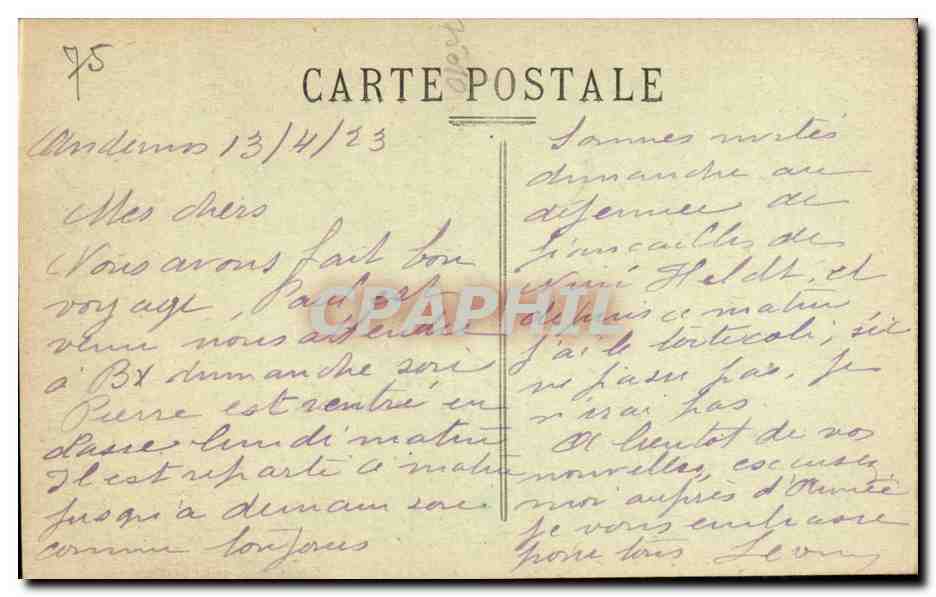 75
CARTE POSTALE
Andernos 13/4/23
Mes chers
Nous avons fait bon
voyage, Paul est
venu nous attendre
à Bx dimanche soir
Pierre est rentré en
classe lundi matin
Il est reparti ce matin
jusqu'à demain soir
comme toujours
Sommes invités
dimanche au
déjeuner de
fiançailles de
Heldt, et
depuis ce matin
j'ai le torticoli, si
ne passe pas, je
n'irai pas
A bientôt de vos
nouvelles, excusez
moi auprès d'Aimée
je vous embrasse
pour tous
CPAPHIL